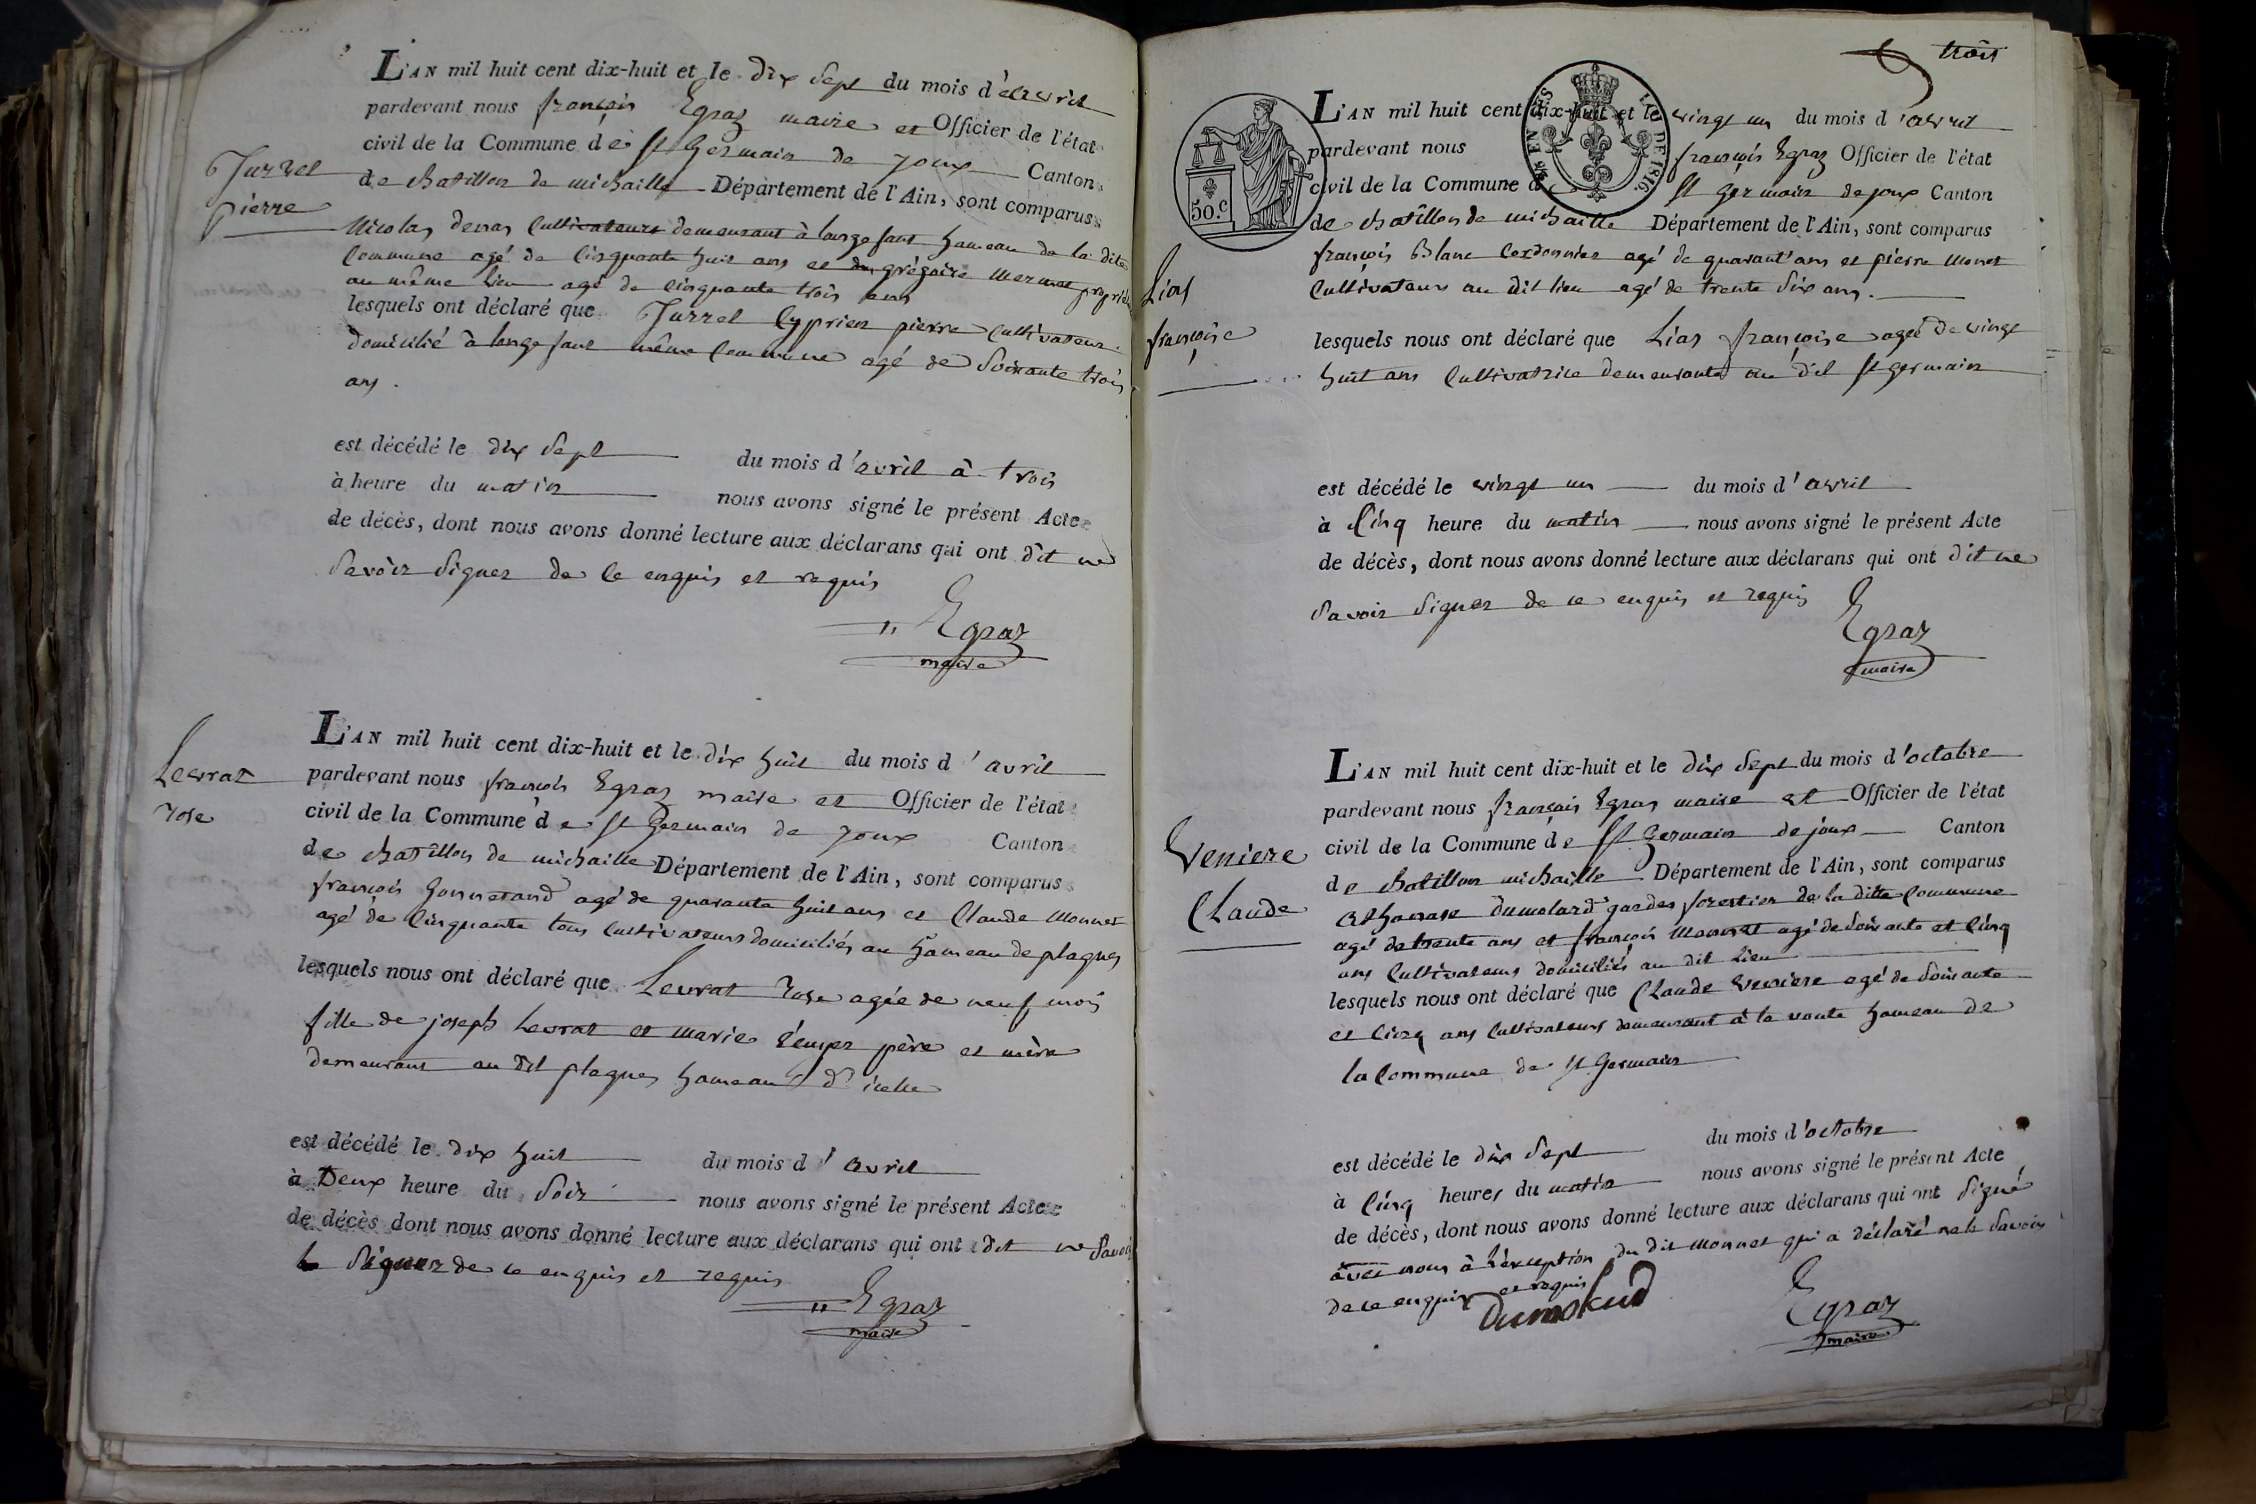 L'AN mil huit cent dix-huit et le dix Sept du mois d'avril
pardevant nous françois Egraz maire et Officier de l'état
civil de la Commune de St Germain de joux Canton
de chatillon de michaille Département de l'Ain, sont comparus
Jurrel
pierre
Nicolas cultivateurs demeurant à longefant hameau de la dite
Commune agé de Cinquante huit ans et grégoire Mermet
au même lieu agé de cinquante trois ans
lesquels ont déclaré que Jurrel Cyprien pierre cultivateur
domicilié à longefant même Commune agé de Soixante trois
ans.
est décédé le dix Sept du mois d'avril à trois
à heure du matin nous avons signé le présent Acte
de décès, dont nous avons donné lecture aux déclarans qui ont dit ne
Savoir Signer de ce enquis et requis
Egraz
maire
L'AN mil huit cent dix-huit et le dix huit du mois d'avril
Levrat
rose
pardevant nous françois Egraz maire et Officier de l'état
civil de la Commune de St Germain de joux Canton
de chatîllon de michaille Département de l'Ain, sont comparus
françois agé de quarante huit ans et Claude Monnet
agé de Cinquante tous Cultivateurs domiciliés au hameau de plagnes
lesquels nous ont déclaré que Levrat Rose agée de neuf mois
fille de joseph Levrat et marie père et mère
demeurant au dit plagnes hameau d'icelle
est décédé le dix huit du mois d'avril
à Deux heure du Soir nous avons signé le présent Acte
de décès dont nous avons donné lecture aux déclarans qui ont dit ne Savoir
Signer de ce enquis et requis
Egraz
maire
trois
EN SUS
50.c
L. DE 1816.
L'AN mil huit cent dix-huit et le vingt un du mois d'avril
pardevant nous françois Egraz Officier de l'état
civil de la Commune de St Germain de joux Canton
de chatîllon de michaille Département de l'Ain, sont comparus
françois Blanc Cordonnier agé de quarant'ans et pierre Monet
Cultivateur au dit lieu agé de trente Six ans.
Lias
françoise
lesquels nous ont déclaré que Lias françoise agée de vingt
huit ans Cultivatrice demeurante au dit St germain
est décédé le vingt un du mois d'avril
à Cinq heure du matin nous avons signé le présent Acte
de décès, dont nous avons donné lecture aux déclarans qui ont dit ne
Savoir Signer de ce enquis et requis
Egraz
maire
L'AN mil huit cent dix-huit et le dix Sept du mois d'octobre
pardevant nous françois Egraz maire et Officier de l'état
civil de la Commune de St Germain de joux Canton
de chatillon michaille Département de l'Ain, sont comparus
Veniere
Claude
Athanase Dumolard gardes forestier de la ditte Commune
agé de trente ans et françois Monnet agé de Soixante et Cinq
ans Cultivateurs domiciliés au dit Lieu
lesquels nous ont déclaré que Claude Veniere agé de Soixante
et Cinq ans Cultivateurs demeurant à la voute hameau de
la Commune de St Germain
est décédé le dix Sept du mois d'octobre
à Cinq heures du matin nous avons signé le présent Acte
de décès, dont nous avons donné lecture aux déclarans qui ont Signé
avec nous à l'exception du dit Monnet qui a déclaré ne le Savoir
de ce enquis et requis
Dumolard
Egraz
maire